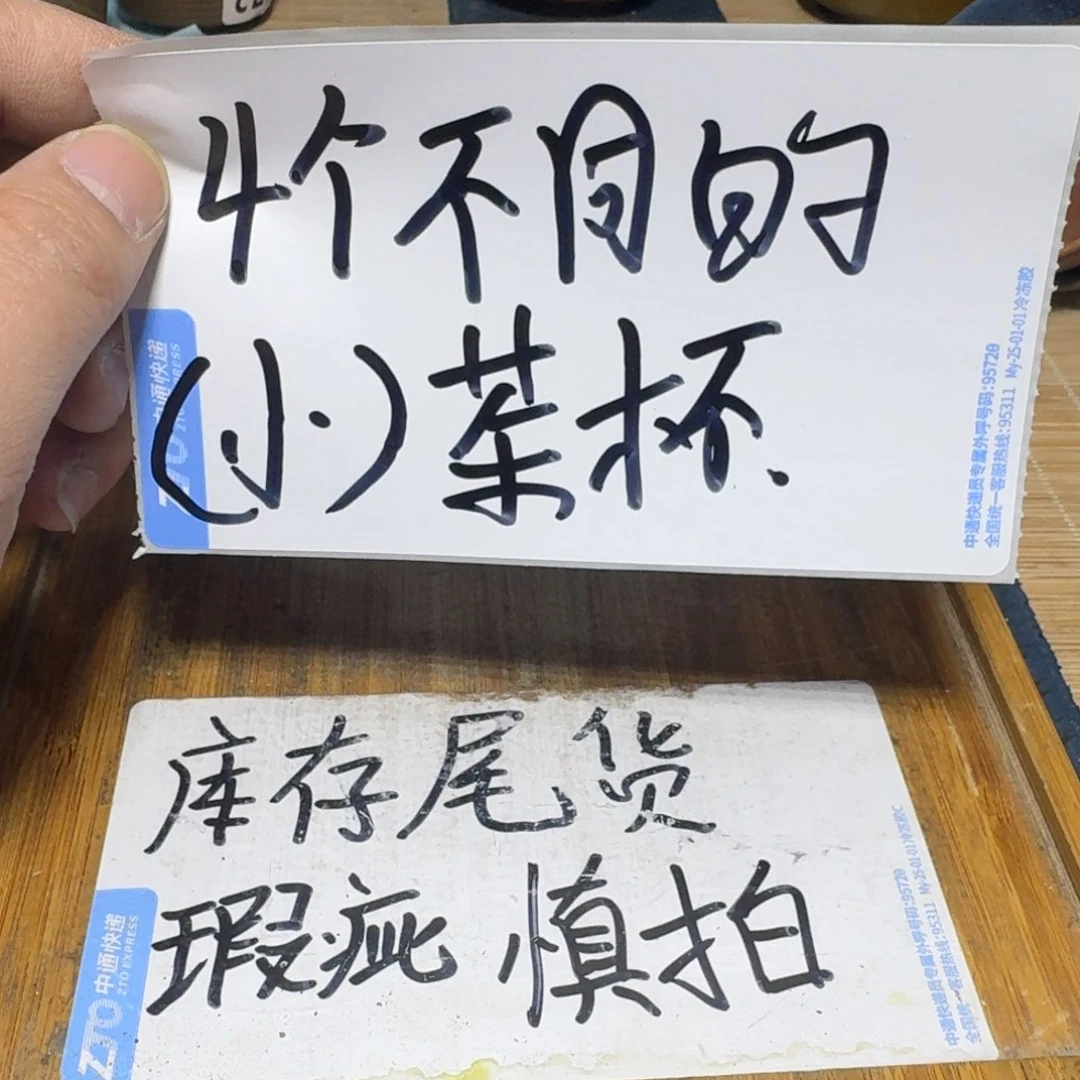 4个不同的
(小)茶杯.
中通快递
ZTO EXPRESS
中通快递员专属外呼号码:95720
全国统一客服热线:95311 My-25-01-01冷冻胶
库存尾货
瑕疵 慎拍
ZTO 中通快递
ZTO EXPRESS
中通快递员专属外呼号码:95720
全国统一客服热线:95311 My-25-01-01冷冻胶C